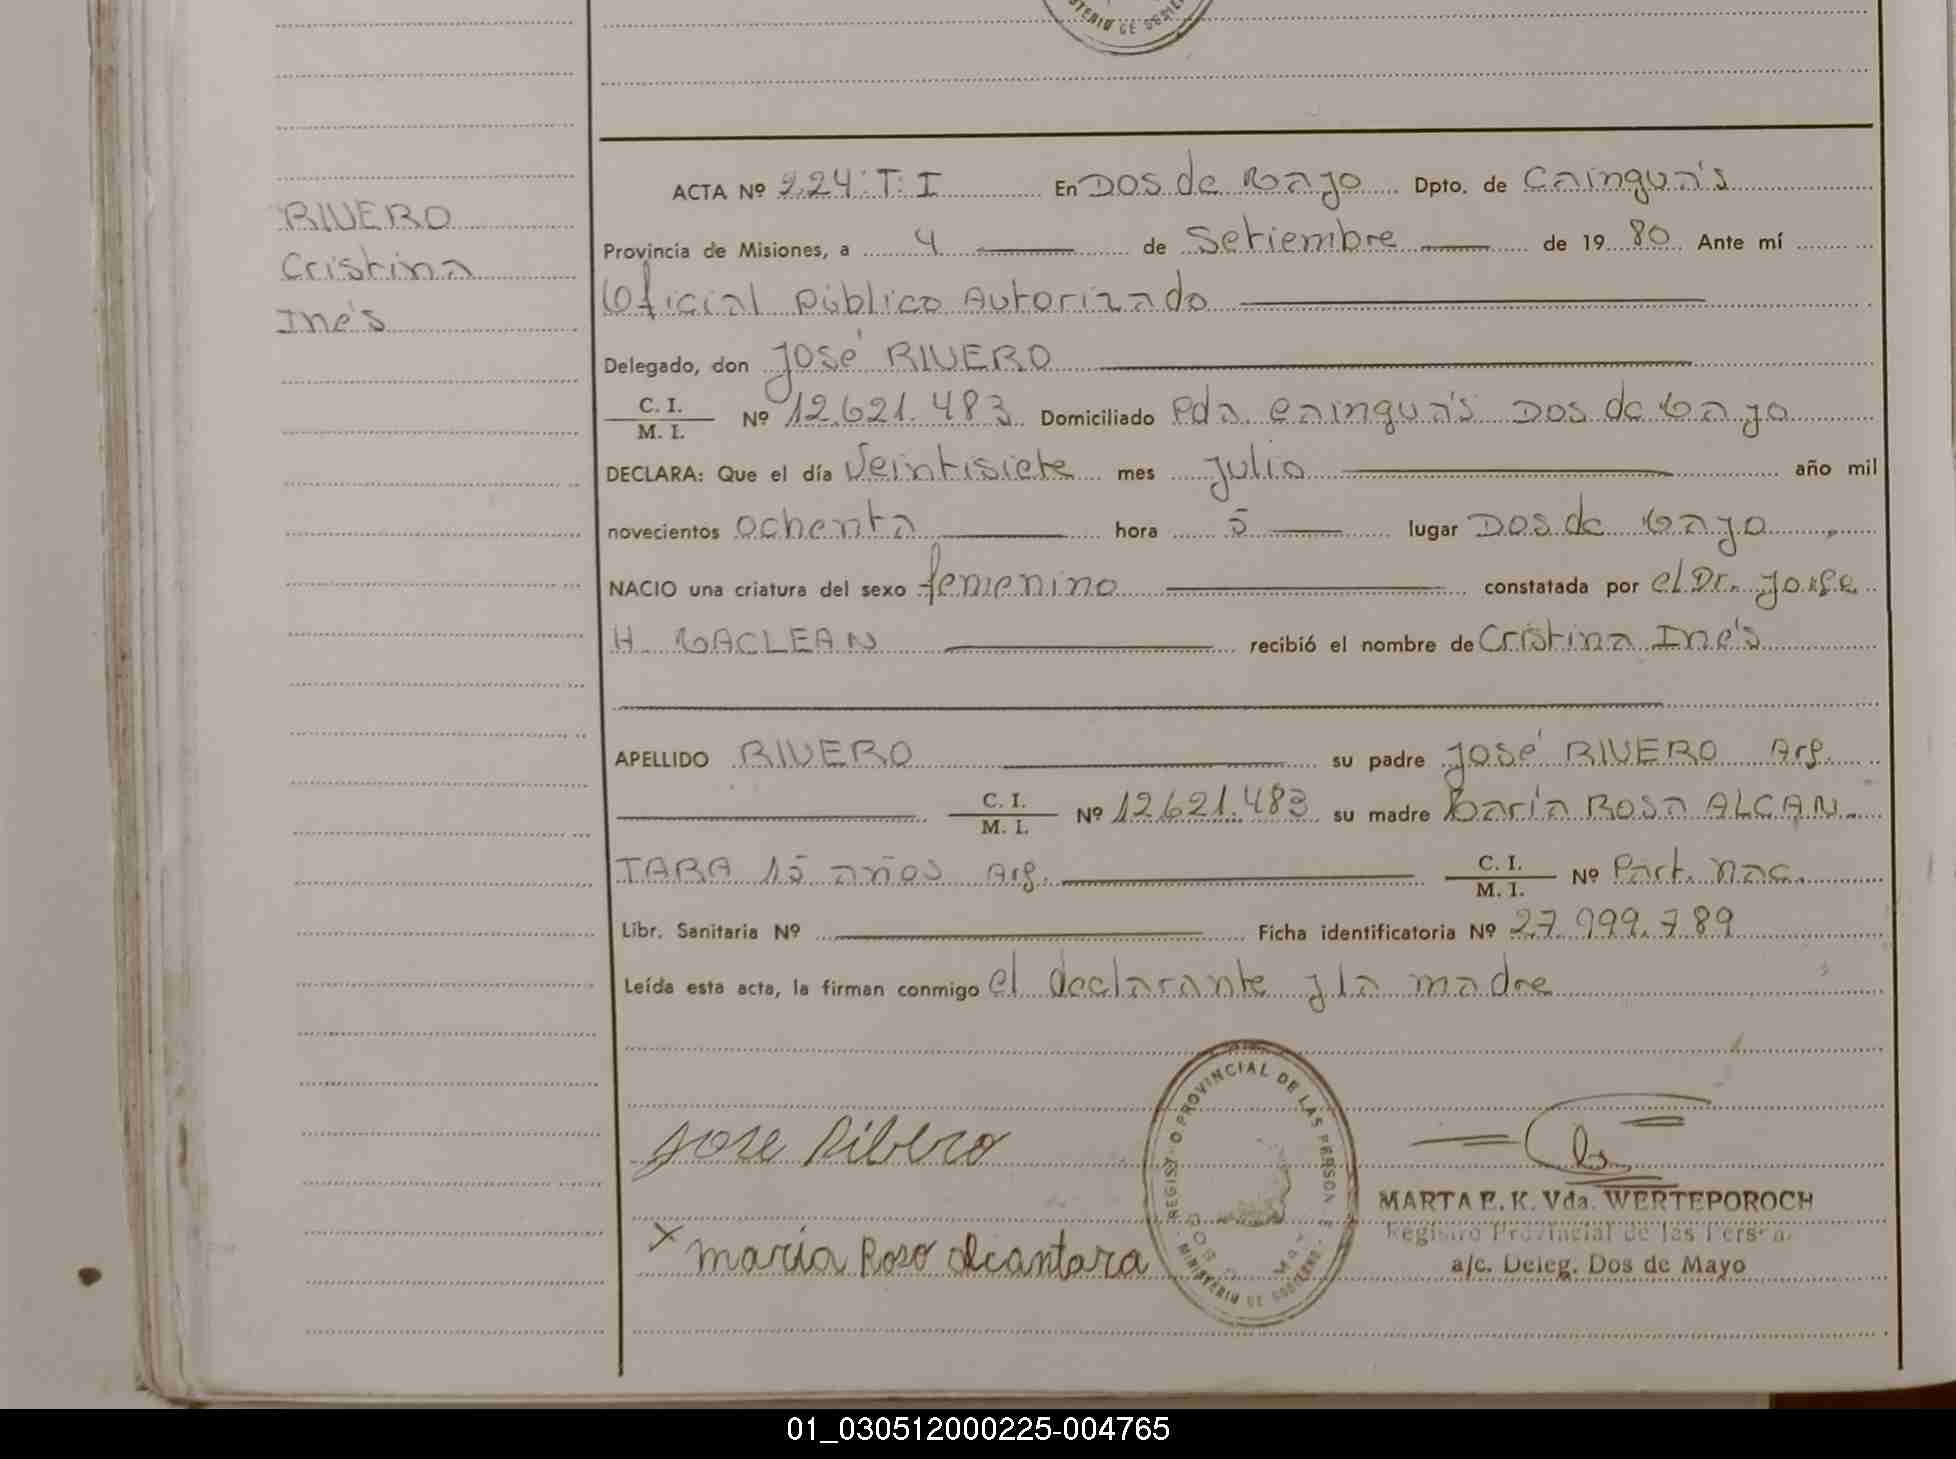 RIVERO
Cristina
Iné's
ACTA Nº 224. T. I En Dos de Mayo Dpto. de Cainguá's
Provincia de Misiones, a 4 de Setiembre de 19 80 Ante mí
Oficial Público Autorizado
Delegado, don José RIVERO
C. I.
M. I. Nº 12.621.483 Domiciliado Pda Cainguá's Dos de Mayo
DECLARA: Que el día Veintisiete mes Julio año mil
novecientos ochenta hora 5 lugar Dos de Mayo
NACIO una criatura del sexo femenino constatada por el Dr. Jorge
H. MACLEAN recibió el nombre de Cristina Iné's
APELLIDO RIVERO su padre José RIVERO Arg.
C. I.
M. I. Nº 12.621.483 su madre María Rosa ALCAN-
TARA 15 años Arg. C. I.
M. I. Nº Part. nac.
Libr. Sanitaria Nº Ficha identificatoria Nº 27.999.789
Leída esta acta, la firman conmigo el declarante y la madre
Jose Ribero
REGIST O PROVINCIAL DE LAS PERSON
MINISTERIO DE GOBIERNO
MARTA E. K. Vda. WERTEPOROCH
Registro Provincial de las Person
x maria Roso alcantara
a/c. Deleg. Dos de Mayo
01_030512000225-004765